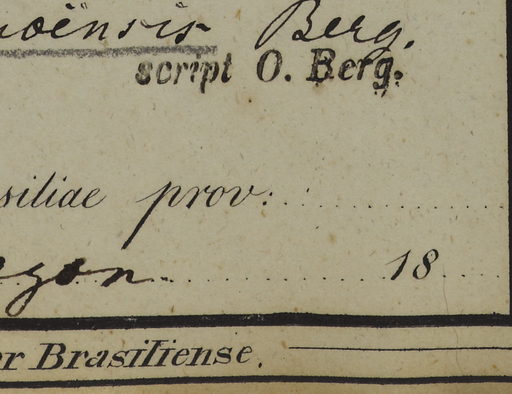 oënsis Berg.
script O. Berg.
siliae prov:
18
r Brasiliense.